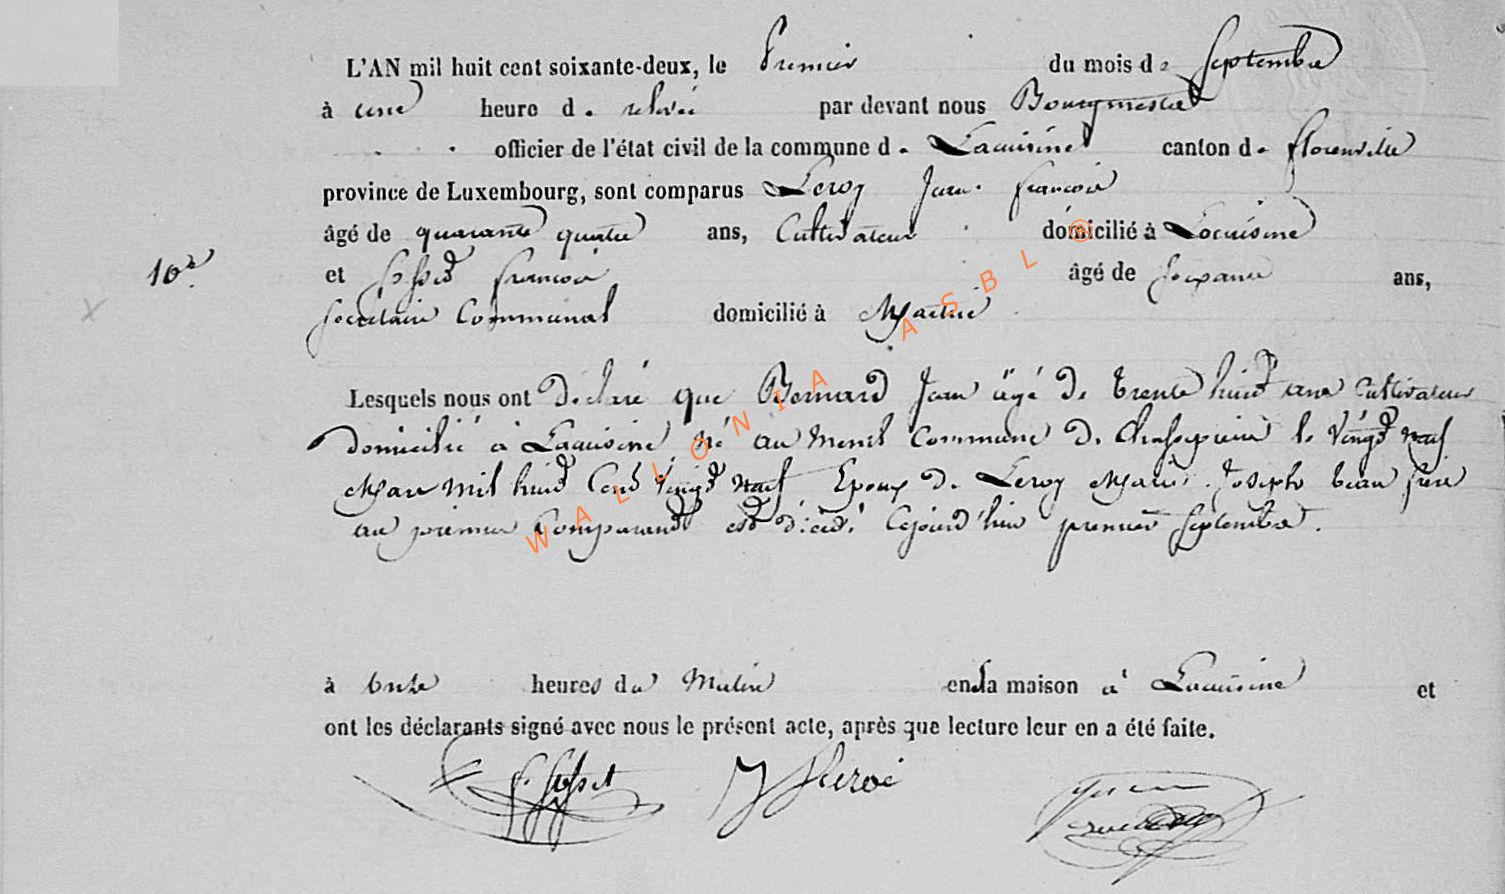 L'AN mil huit cent soixante-deux, le Premier du mois de Septembre
à une heure de relevée par devant nous Bourgmestre
officier de l'état civil de la commune de Lacuisine canton de florenville
province de Luxembourg, sont comparus Leroy Jean françois
âgé de quarante quatre ans, Cultivateur domicilié à Lacuisine
10e et françois âgé de soixante ans,
secrétaire Communal domicilié à Martué
Lesquels nous ont déclaré que Bernard Jean âgé de trente huit ans Cultivateur
domicilié à Lacuisine, né au Menil Commune de Chassepierre le vingt neuf
Mars mil huit Cent vingt neuf Epoux de Leroy Marie Joseph beau frère
au premier Comparant est décédé Cejourd'hui premier Septembre.
à onze heures du Matin en la maison à Lacuisine et
ont les déclarants signé avec nous le présent acte, après que lecture leur en a été faite.
WALLONIA ASBL ®